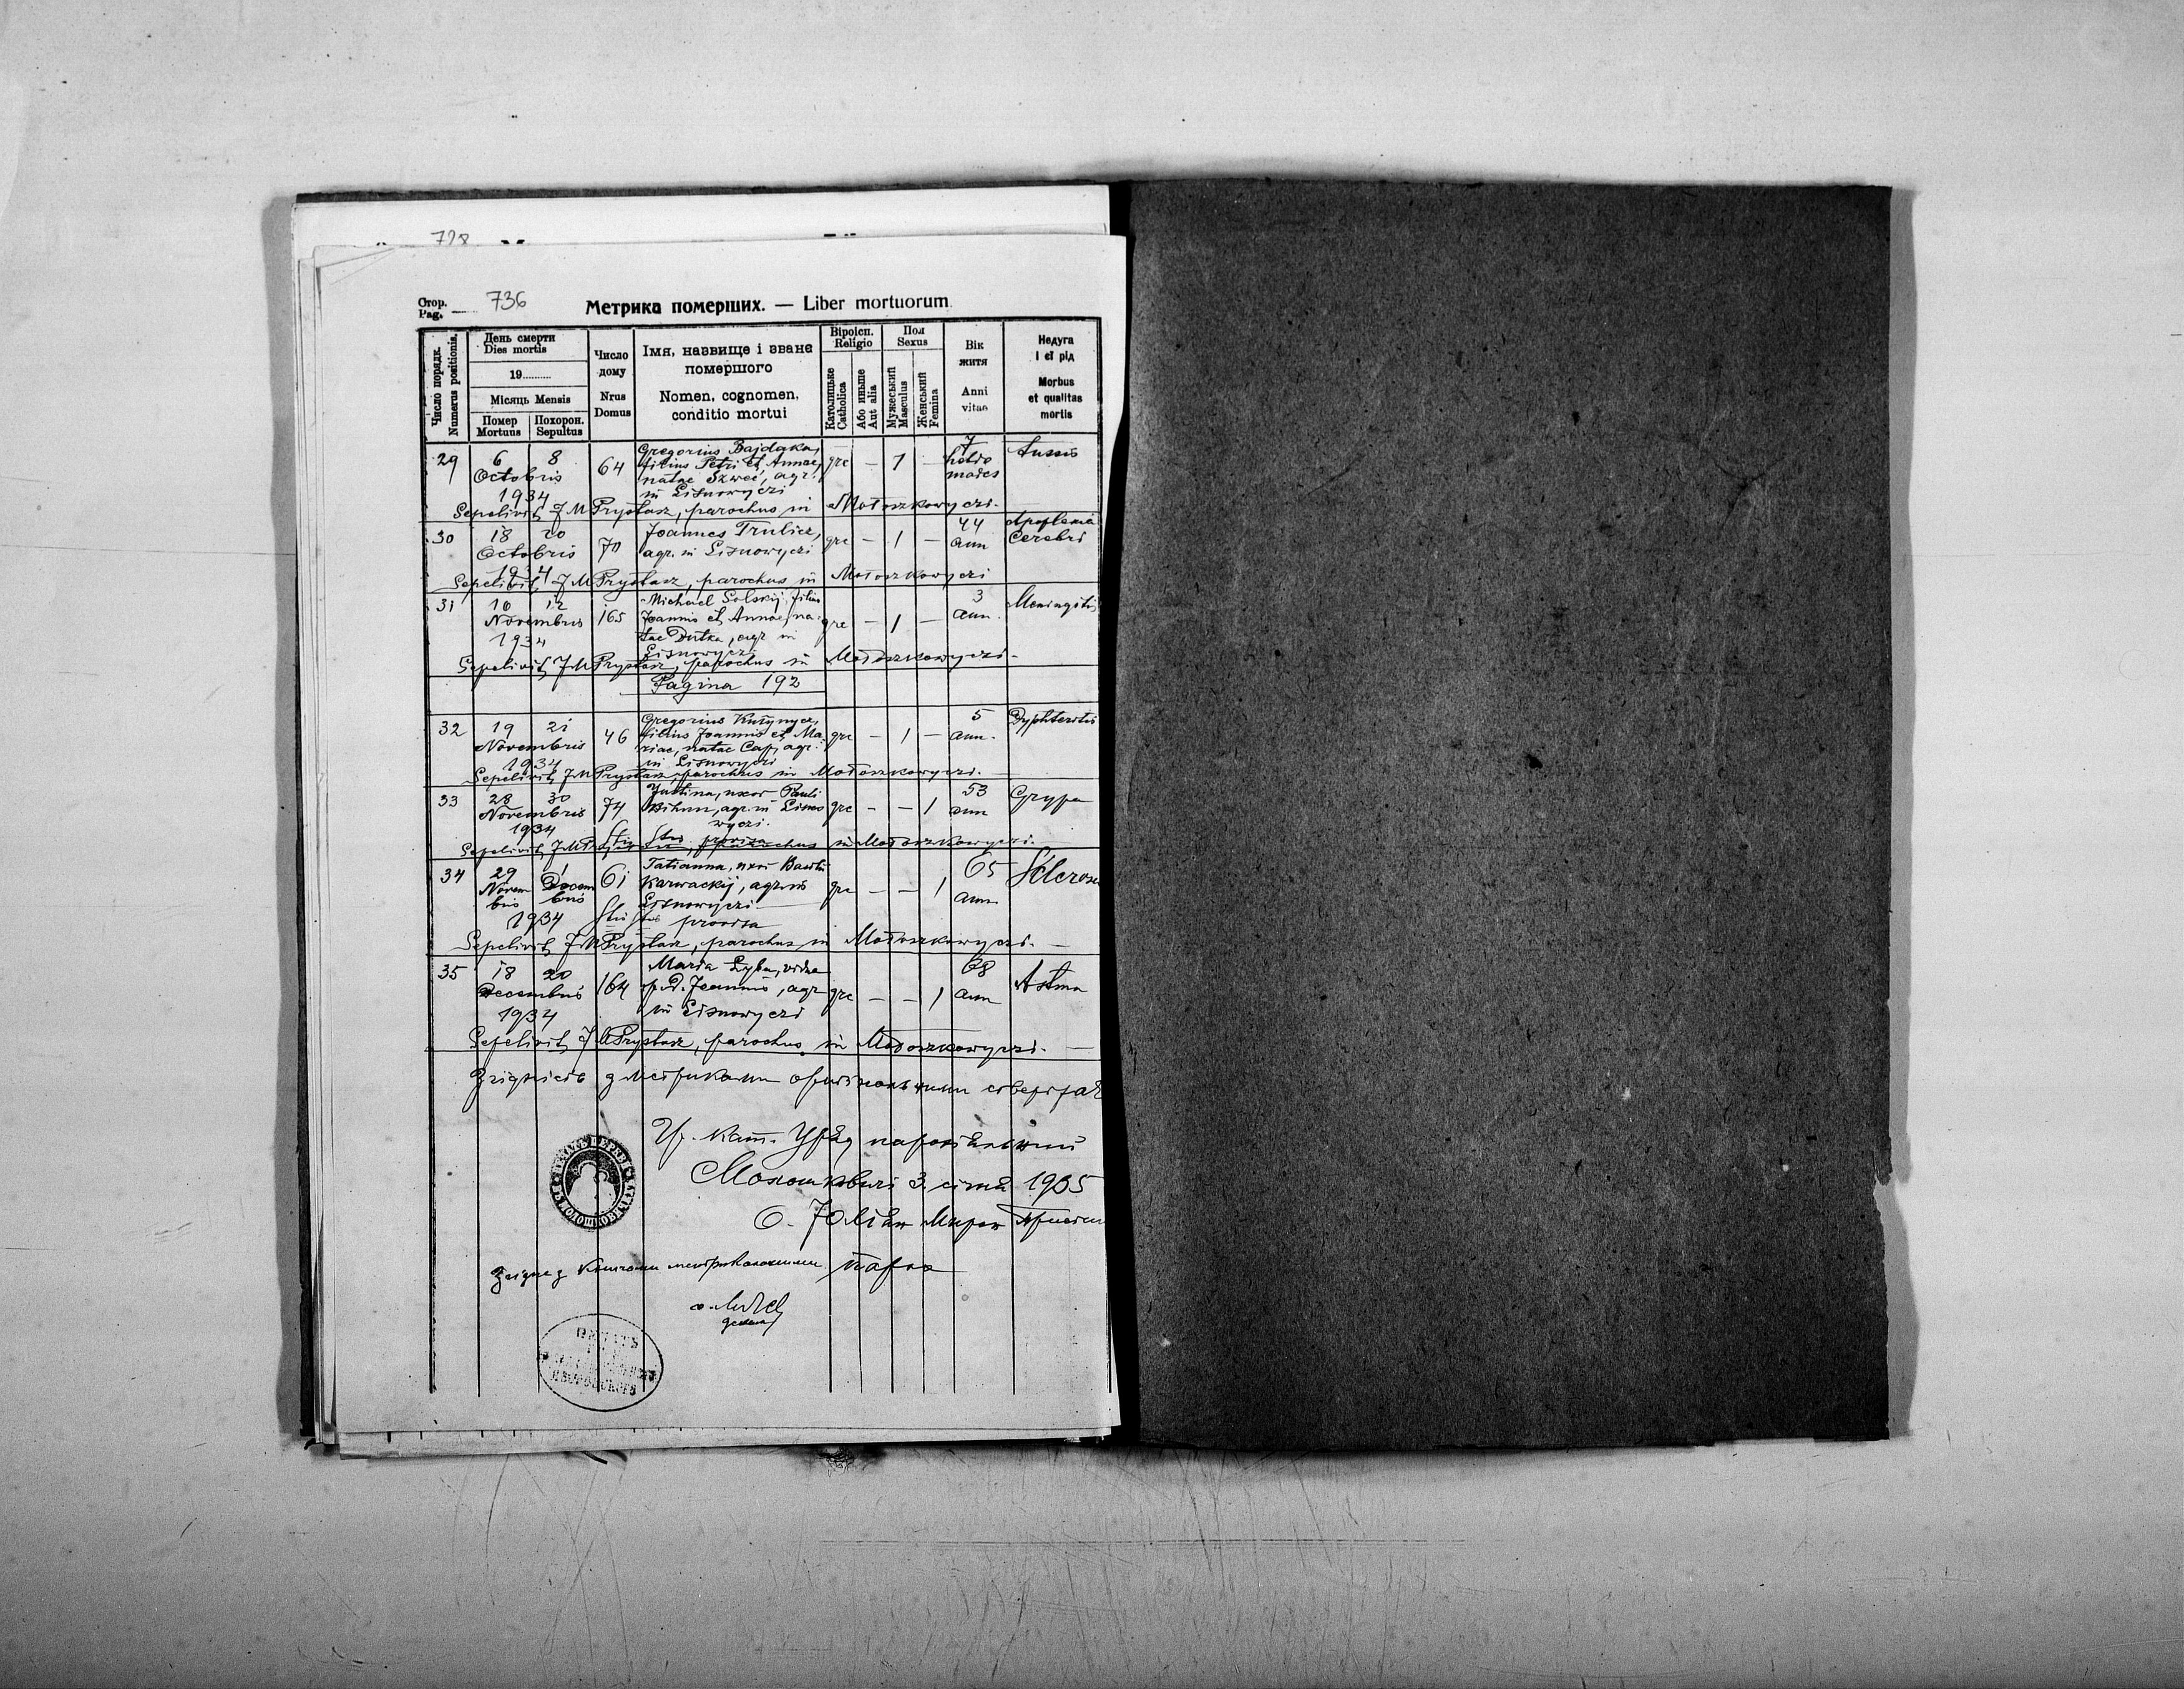 728
Стор.
Pag. 736
Метрика померших. — Liber mortuorum
Число порядк.
Numerus positionis.
День смерти
Dies mortis
19
Місяць Mensis
Помер
Mortuus
Похорон.
Sepultus
Число
дому
Nrus
Domus
Імя, назвище і зване
помершого
Nomen, cognomen,
conditio mortui
Віроісп.
Religio
Католицьке
Catholica
Або иньше
Aut alia
Пол
Sexus
Мужеський
Masculus
Женський
Femina
Вік
житя
Anni
vitae
Недуга
і єї рід
Morbus
et qualitas
mortis
29 6 8 64 Gregorius Bajdaka, grc — 1 — 7 Tussis
Octobris filius Petri et Annae, hebdo
natae Szwec, agr. mades
1934 in Lisnowyczi
Sepelivit J M Prystasz, parochus in Mołoszkowyczi.
30 18 20 70 Joannes Trulicz, grc — 1 — 44 Apoplexia
Octobris agr. in Lisnowyczi ann Cerebri
1934
Sepelivit J M Prystasz, parochus in Mołoszkowyczi
31 10 12 165 Michael Solskij, filius grc — 1 — 3 Meningitis
Novembris Joannis et Annae, na- ann.
1934 tae Dutka, agr in
Lisnowyczi
Sepelivit J M Prystasz, parochus in Mołoszkowyczi-
Pagina 192
32 19 21 46 Gregorius grc — 1 — 5 Dyphteritis
Novembris filius Joannis et Ma- ann.
riae, natae Cap, agr.
1934 in Lisnowyczi
Sepelivit J M Prystasz, parochus in Mołoszkowyczi.
33 28 30 74 Justina, uxor Pauli grc — — 1 53 Grypa
Novembris Bihun, agr. in Lisno ann
1934 wyczi.
Sepelivit J M parochus in Mołoszkowyczi.
34 29 1 61 Tatianna, uxor Basilii grc — — 1 65 Sclerosis
Novem Decem Karwackij, agr. in ann
bris bris Lisnowyczi
1934 provisa
Sepelivit J M Prystasz, parochus in Mołoszkowyczi.
35 18 20 164 Maria Łyba, vidua grc — — 1 68 Astma
Decembris p. d. Joannis, agr ann
1934 in Lisnowyczi
Sepelivit J M Prystasz, parochus in Mołoszkowyczi.
Згідність з метриками оригінальними стверджає
Гр. кат. Уряд парохіяльний
Молошковичі 3. січня 1935
О. Юліян Мирон
парох
Згідне з книгами метрикальними
декан
ПЕЧАТЬ